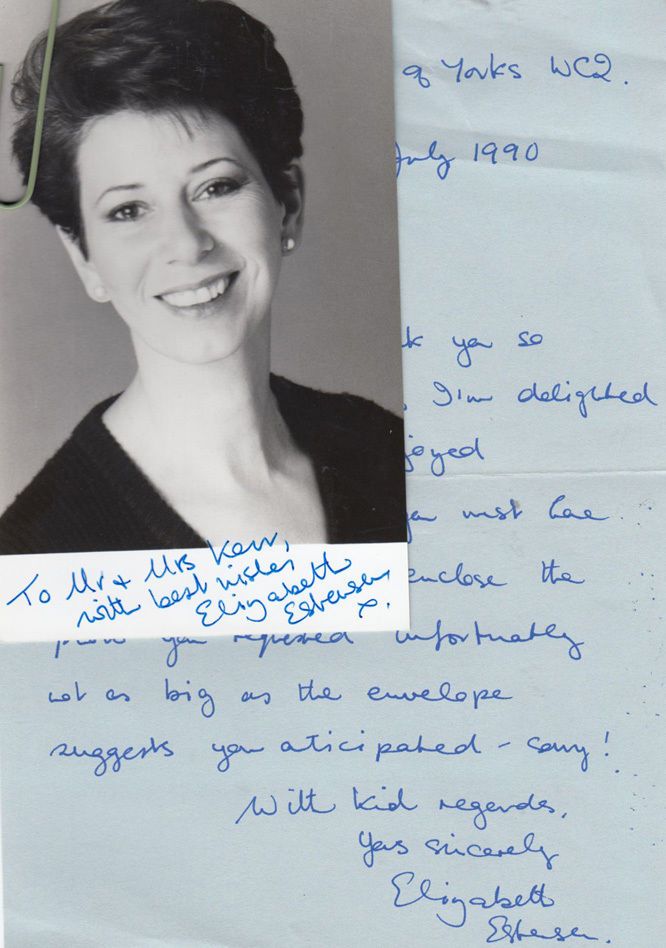 of Yorks WC2.
July 1990
k you so
I'm delighted
joyed
you must have
enclose the
photo you requested unfortunatly
not as big as the envelope
suggests you aticipated - sorry!
With kid regards,
Yours sincerely
Elizabeth
Estensen.
To Mr + Mrs Kerr,
with best wishes
Elizabeth
Estensen
x.